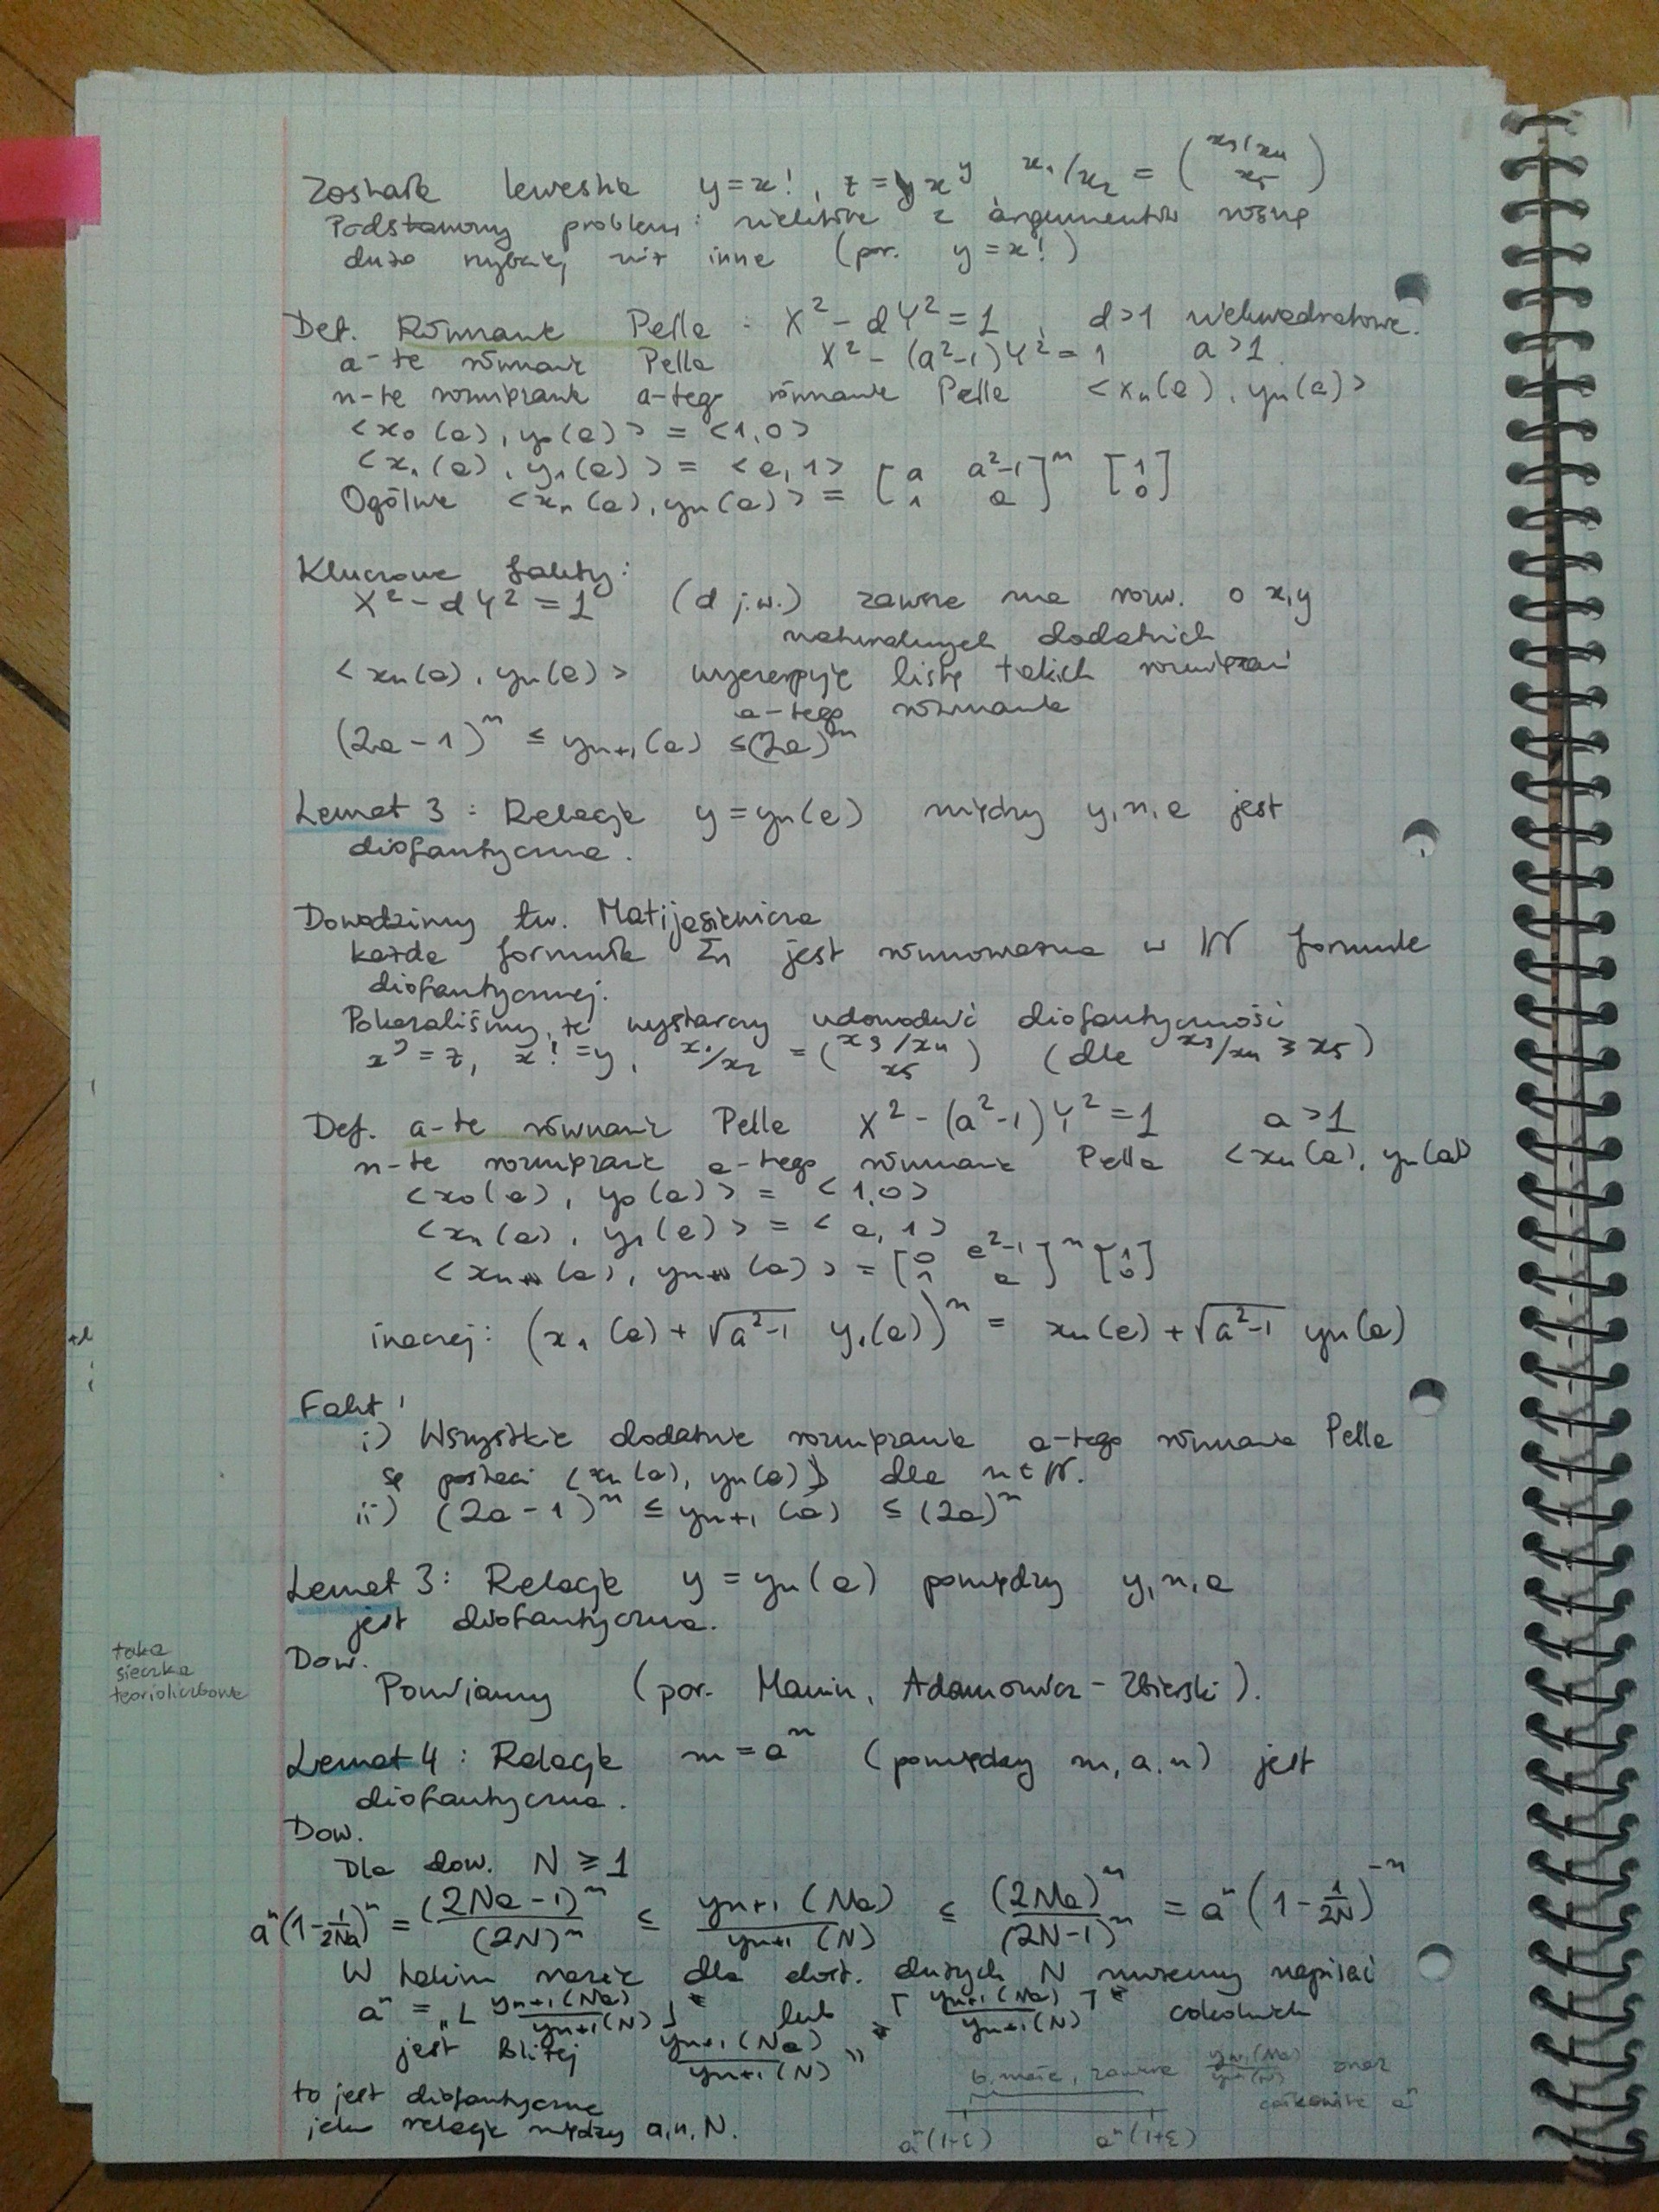 Została kwestia y=x!, z=x^y x₁/x₂ = (x₃/x₄ x₅)
Podstawowy problem: niektóre z argumentów rosną
dużo szybciej niż inne (por. y=x!)
Def. Równanie Pella: X²-dY²=1, d>1 niekwadratowe.
a-te równanie Pella X²-(a²-1)Y²=1 a>1.
n-te rozwiązanie a-tego równania Pella <xₙ(a), yₙ(a)>
<x₀(a), y₀(a)> = <1,0>
<x₁(a), y₁(a)> = <a,1>
Ogólnie <xₙ(a), yₙ(a)> = [a a²-1 1 a]ⁿ [1 0]
Kluczowe fakty:
X²-dY²=1 (d j.w.) zawsze ma rozw. o x,y
naturalnych dodatnich
<xₙ(a), yₙ(a)> wyczerpuje listę takich rozwiązań
a-tego równania
(2a-1)ⁿ ≤ yₙ₊₁(a) ≤ (2a)ⁿ
Lemat 3: Relacja y=yₙ(a) między y,n,a jest
diofantyczna.
Dowodzimy tw. Matijasiewicza
każda formuła Σ₁ jest równoważna w ℕ formule
diofantycznej.
Pokazaliśmy, że wystarczy udowodnić diofantyczność
x^y=z, x!=y, x₁/x₂ = (x₃/x₄ x₅) (dla x₃/x₄ ≥ x₅)
Def. a-te równanie Pella X²-(a²-1)Y²=1 a>1
n-te rozwiązanie a-tego równania Pella <xₙ(a), yₙ(a)>
<x₀(a), y₀(a)> = <1,0>
<x₁(a), y₁(a)> = <a,1>
<xₙ(a), yₙ(a)> = [a a²-1 1 a]ⁿ [1 0]
inaczej: (x₁(a)+√(a²-1) y₁(a))ⁿ = xₙ(a)+√(a²-1) yₙ(a)
Fakt
i) Wszystkie dodatnie rozwiązania a-tego równania Pella
są postaci <xₙ(a), yₙ(a)> dla n∈ℕ.
ii) (2a-1)ⁿ ≤ yₙ₊₁(a) ≤ (2a)ⁿ
Lemat 3: Relacja y=yₙ(a) pomiędzy y,n,a
jest diofantyczna.
Dow.
taka
sieczka
teorioliczbowa
Pomijamy (por. Manin, Adamowicz-Zbierski).
Lemat 4: Relacja m=aⁿ (pomiędzy m,a,n) jest
diofantyczna.
Dow.
Dla dow. N≥1
aⁿ(1-1/(2Na))ⁿ = (2Na-1)ⁿ/(2N)ⁿ ≤ yₙ₊₁(Na)/yₙ₊₁(N) ≤ (2Na)ⁿ/(2N-1)ⁿ = aⁿ(1-1/(2N))⁻ⁿ
W takim razie dla dost. dużych N możemy napisać
aⁿ = „⌊yₙ₊₁(Na)/yₙ₊₁(N)⌋" lub „⌈yₙ₊₁(Na)/yₙ₊₁(N)⌉" cokolwiek
jest bliżej yₙ₊₁(Na)/yₙ₊₁(N)"
b. małe, zawiera yₙ₊₁(Na)/yₙ₊₁(N) oraz
całkowite aⁿ
to jest diofantyczne
jako relacja między a,n,N.
aⁿ(1-ε) aⁿ(1+ε)